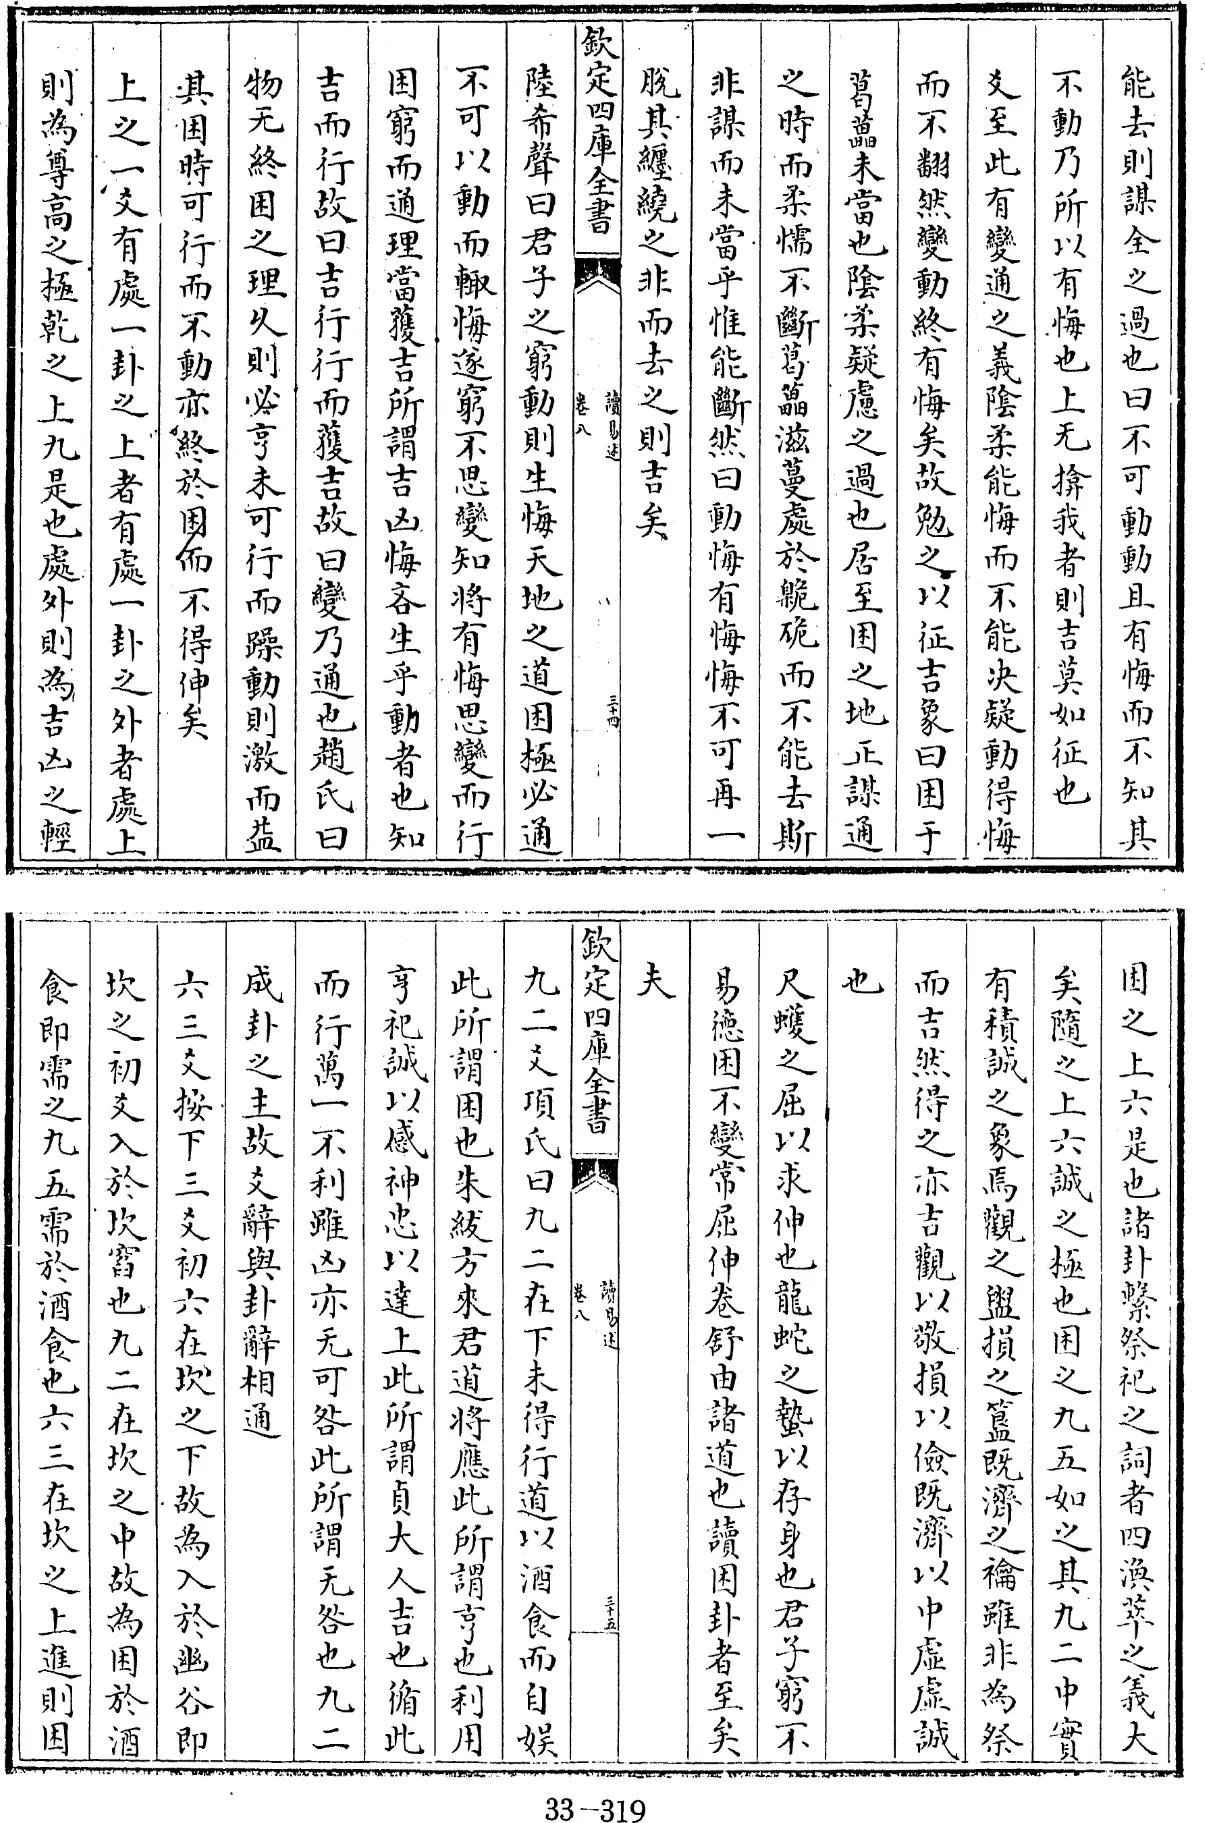 能去則謀全之過也曰不可動動且有悔而不知其
不動乃所以有悔也上无揜我者則吉莫如征也
爻至此有變通之義陰柔能悔而不能决疑動得悔
而不翻然變動終有悔矣故勉之以征吉象曰困于
葛藟未當也陰柔疑慮之過也居至困之地正謀通
之時而柔懦不斷葛藟滋蔓處於臲硊而不能去斯
非謀而未當乎惟能斷然曰動悔有悔悔不可再一
脫其纏繞之非而去之則吉矣
欽定四庫全書
讀易述
卷八
三十四
陸希聲曰君子之窮動則生悔天地之道困極必通
不可以動而輙悔遂窮不思變知将有悔思變而行
困窮而通理當獲吉所謂吉凶悔吝生乎動者也知
吉而行故曰吉行行而獲吉故曰變乃通也趙氏曰
物无終困之理乆則必亨未可行而躁動則激而益
其困時可行而不動亦終於困而不得伸矣
上之一爻有處一卦之上者有處一卦之外者處上
則為尊高之極乾之上九是也處外則為吉凶之輕
困之上六是也諸卦繫祭祀之詞者四渙萃之義大
矣隨之上六誠之極也困之九五如之其九二中實
有積誠之象焉觀之盥損之簋既濟之禴雖非為祭
而吉然得之亦吉觀以敬損以儉既濟以中虛虛誠
也
尺蠖之屈以求伸也龍蛇之蟄以存身也君子窮不
易德困不變常屈伸卷舒由諸道也讀困卦者至矣
夫
欽定四庫全書
讀易述
卷八
三十五
九二爻項氏曰九二在下未得行道以酒食而自娱
此所謂困也朱紱方來君道将應此所謂亨也利用
亨祀誠以感神忠以達上此所謂貞大人吉也循此
而行萬一不利雖凶亦无可咎此所謂无咎也九二
成卦之主故爻辭與卦辭相通
六三爻按下三爻初六在坎之下故為入於幽谷即
坎之初爻入於坎窞也九二在坎之中故為困於酒
食即需之九五需於酒食也六三在坎之上進則困
33-319